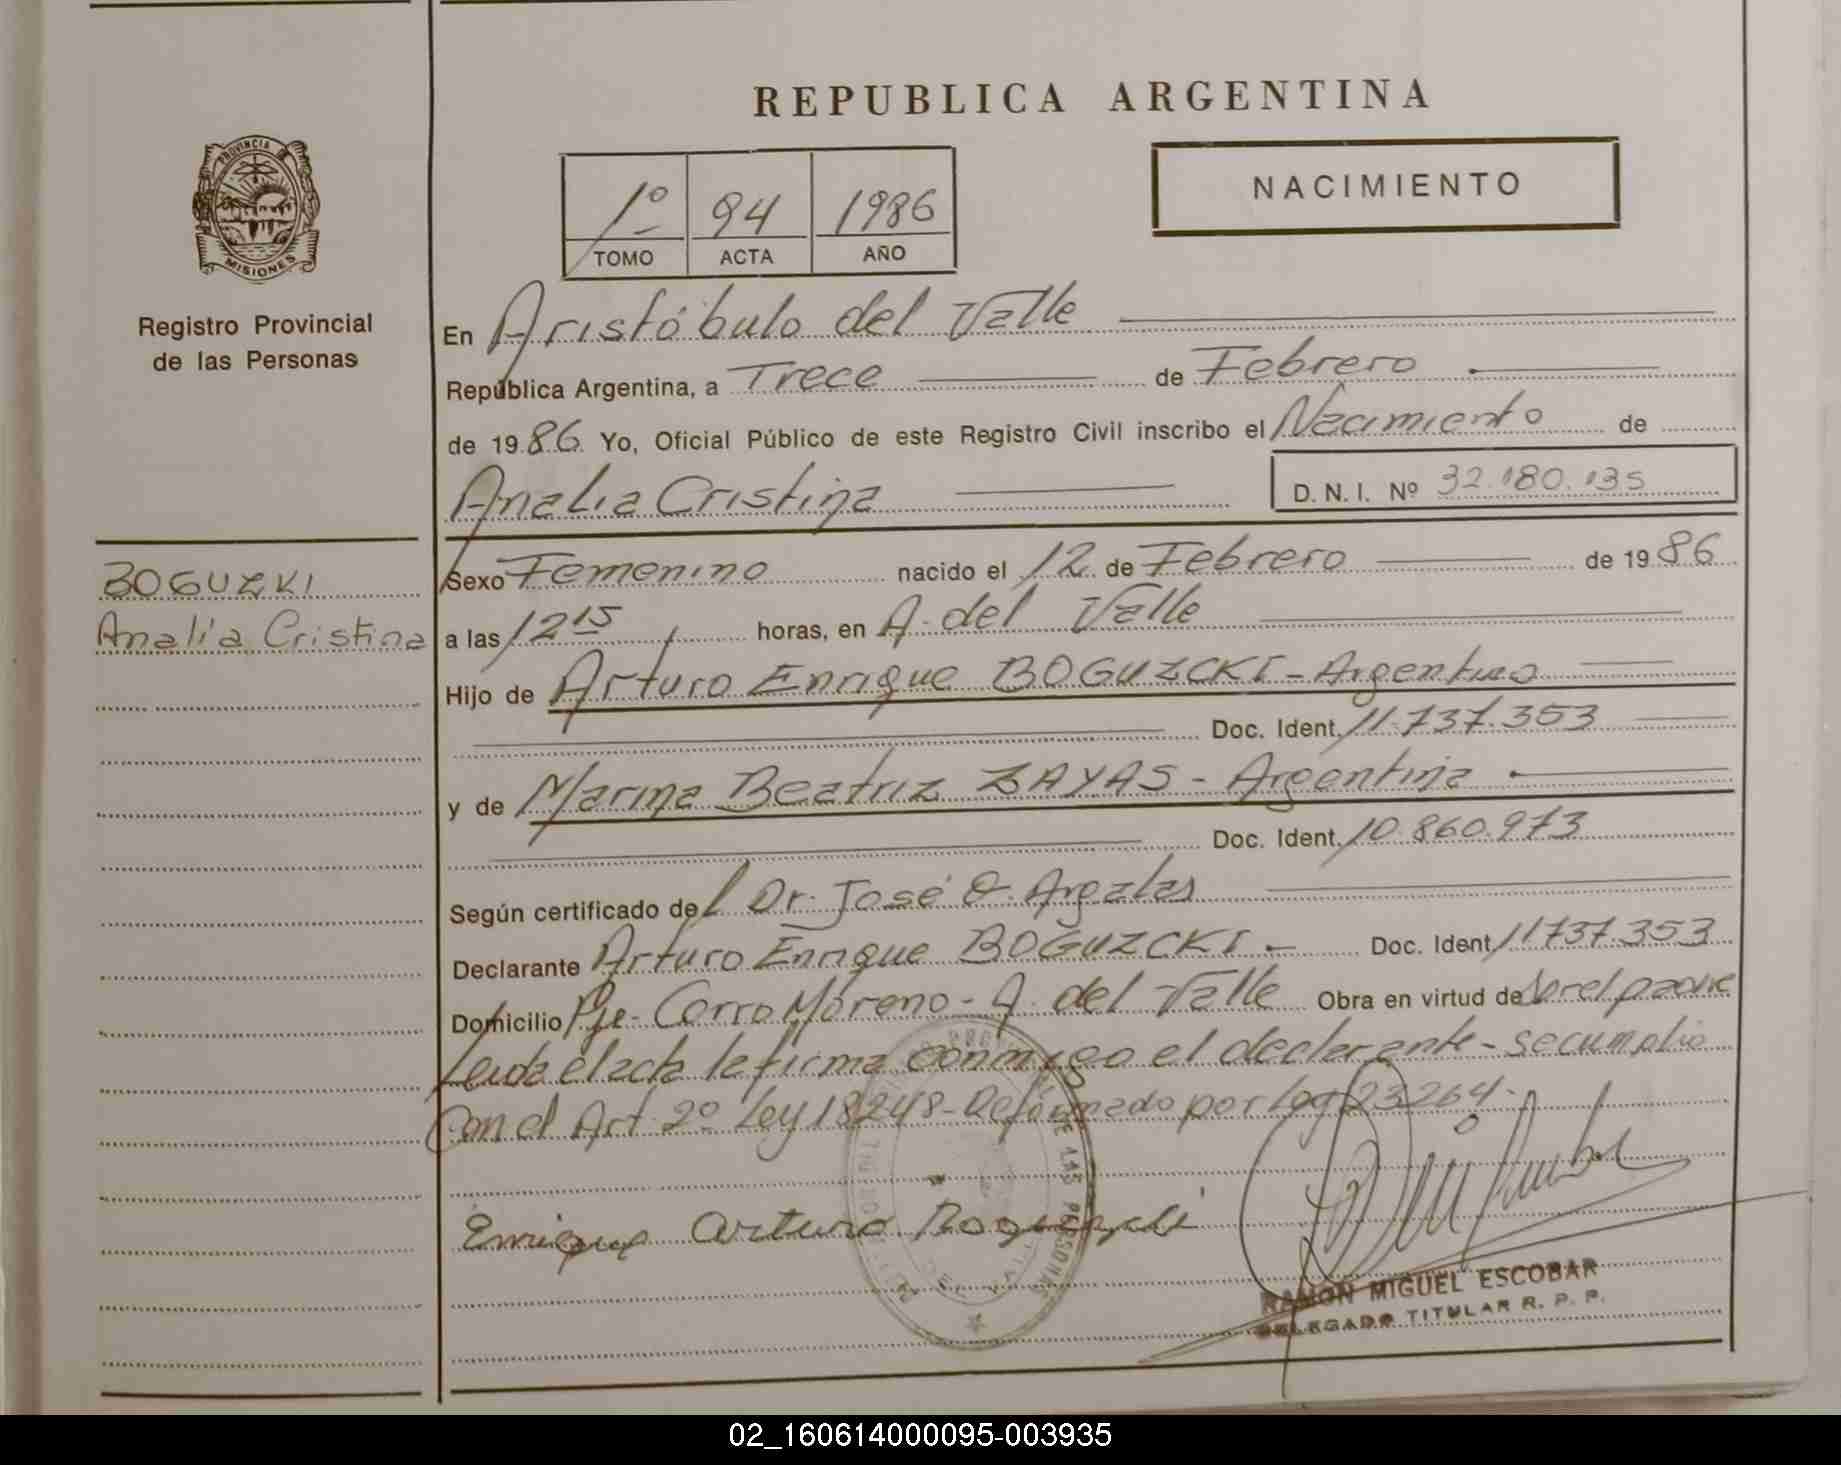 REPUBLICA ARGENTINA
PROVINCIA DE
MISIONES
Registro Provincial
de las Personas
1º 94 1986
TOMO ACTA AÑO
NACIMIENTO
En Aristóbulo del Valle
República Argentina, a Trece de Febrero
de 1986 Yo, Oficial Público de este Registro Civil inscribo el Nacimiento de
Analia Cristina D.N.I. Nº 32.180.135
BOGUZKI
Analía Cristina
Sexo Femenino nacido el 12 de Febrero de 1986
a las 12 15 horas, en A. del Valle
Hijo de Arturo Enrique BOGUZCKI - Argentino
Doc. Ident. 11.737.353
y de Marina Beatriz ZAYAS - Argentina
Doc. Ident. 10.860.973
Según certificado del Dr. José O. Argalas
Declarante Arturo Enrique BOGUZCKI - Doc. Ident. 11737.353
Domicilio Pje. Corro Moreno - A. del Valle Obra en virtud de ser el padre
Leida el acta la firma conmigo el declarante - se cumplio
con el Art. 2º Ley 18248 - Reformado por Ley 23264 -
Enrique Arturo Boguzcki
RAMON MIGUEL ESCOBAR
DELEGADO TITULAR R. P. P.
02_160614000095-003935